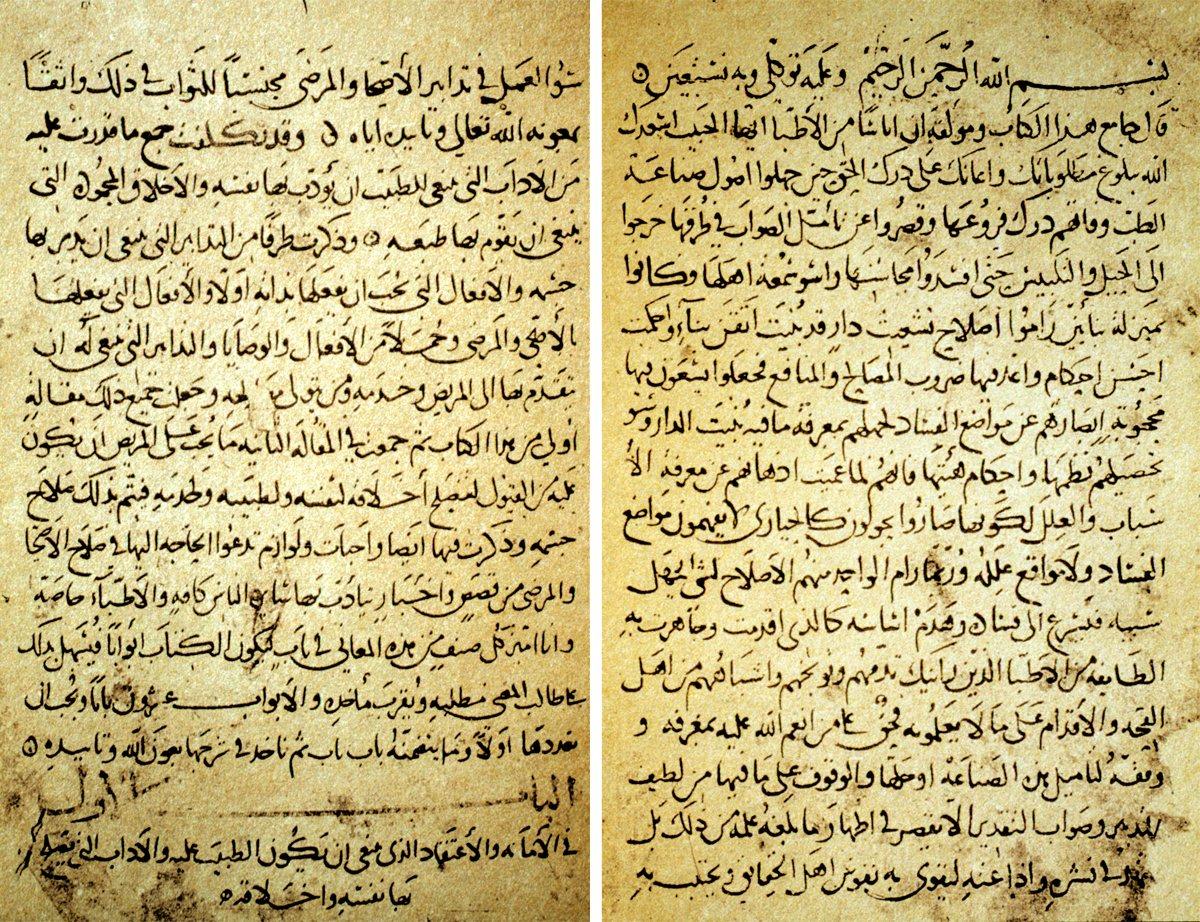 بسم الله الرحمن الرحيم وعليه توكلي وبه نستعين
قال جامع هذا الكتاب ومؤلفه اني اناشا من الأطبا ايها الحبيب اسعدك
الله ببلوغ مطلوباتك واعانك على درك الحق حين جهلوا اصول صناعة
الطب وفاتهم درك فروعها وقصروا عن تأمل الصواب في طرقها خرجوا
الى الحيل والتلبيس حتى افسدوا محاسنها واسو سمعة اهلها وكانوا
بمنزلة بنائين راموا اصلاح تشعيث دار قد بنيت اتقن بناء واحكمت
احسن احكام واعد فيها ضروب المصالح والمنافع فجعلوا يسعون فيها
محجوبة ابصارهم عن مواضع الفساد لجهلهم بمعرفة ما فيه بنيت الدار وسو
تحصيلهم نظمها واحكام هيئتها فانهم لما عميت اذهانهم عن معرفة الأ
سباب والعلل لكونها صاروا يجولون كالحيارى لا يفهمون مواضع
الفساد ولا مواقع علله وربما رام الواحد منهم الاصلاح لشي يجهل
سببه فيسرع الى فساده وهدم اساسه كالذي اقدمت وجاهرت به
الطايفه من الاطبا الذين رايتك تذمهم وتوبخهم واشباههم من اهل
القحه والاقدام على ما لا يعلمونه فحق على من انعم الله عليه بمعرفه و
وفقه لتاميل هذه الصناعة او جلها والوقوف على ما فيها من لطيف
التدبير وصواب التقدير الا يقصر في اظهار ما بلغه علمه من ذلك بل
في نشره واذاعته ليقوى به نفوس اهل الحقائق ويجتنب به
سو العمل في تدابير الأصحا والمرضى محتسبا للثواب في ذلك واثقا
بمعونة الله تعالى وتاييده اياه وقد تكلفت جمع ما قدرت عليه
من الاداب التي ينبغي للطبيب ان يؤدب بها نفسه والاخلاق المحمودة التي
ينبغي ان يقوم بها طبعه وذكرت طرفا من التدابير التي ينبغي ان يدبر بها
جسمه والأفعال التي يجب ان يفعلها بذاته اولا والأفعال التي يفعلها
بالأصحا والمرضى وجملا من الافعال والوصايا والتدابير التي ينبغي له ان
يتقدم بها الى المريض وخدمه ومن يتولى وجعلت جميع ذلك مقالة
اولى من هذا الكتاب ثم جمعت في المقالة الثانيه ما يجب على المريض ان يكون
عليه من القبول لمصلح أخلاقه لنفسه ولطبيبه ولخدمه فيتم بذلك صلاح
جسمه وذكرت فيها ايضا واجبات ولوازم تدعوا الحاجه اليها في صلاح الأصحا
والمرضى من قصص واخبار يتأدب بها الناس كافة والاطباء خاصة
وانا افرد كل صنف من هذه المعاني في باب ليكون الكتاب ابوابا فيسهل بذلك
على طالب المعنى مطلبه ويقرب مأخذه والابواب عشرون بابا ويجب ان
نعددها اولا وما يتضمنه باب باب ثم ناخذ في شرحها بعون الله وتاييده
الباب أول
في الأمانة والأعتقاد الذي ينبغي ان يكون الطبيب عليه والآداب التي
بها نفسه واخلاقه